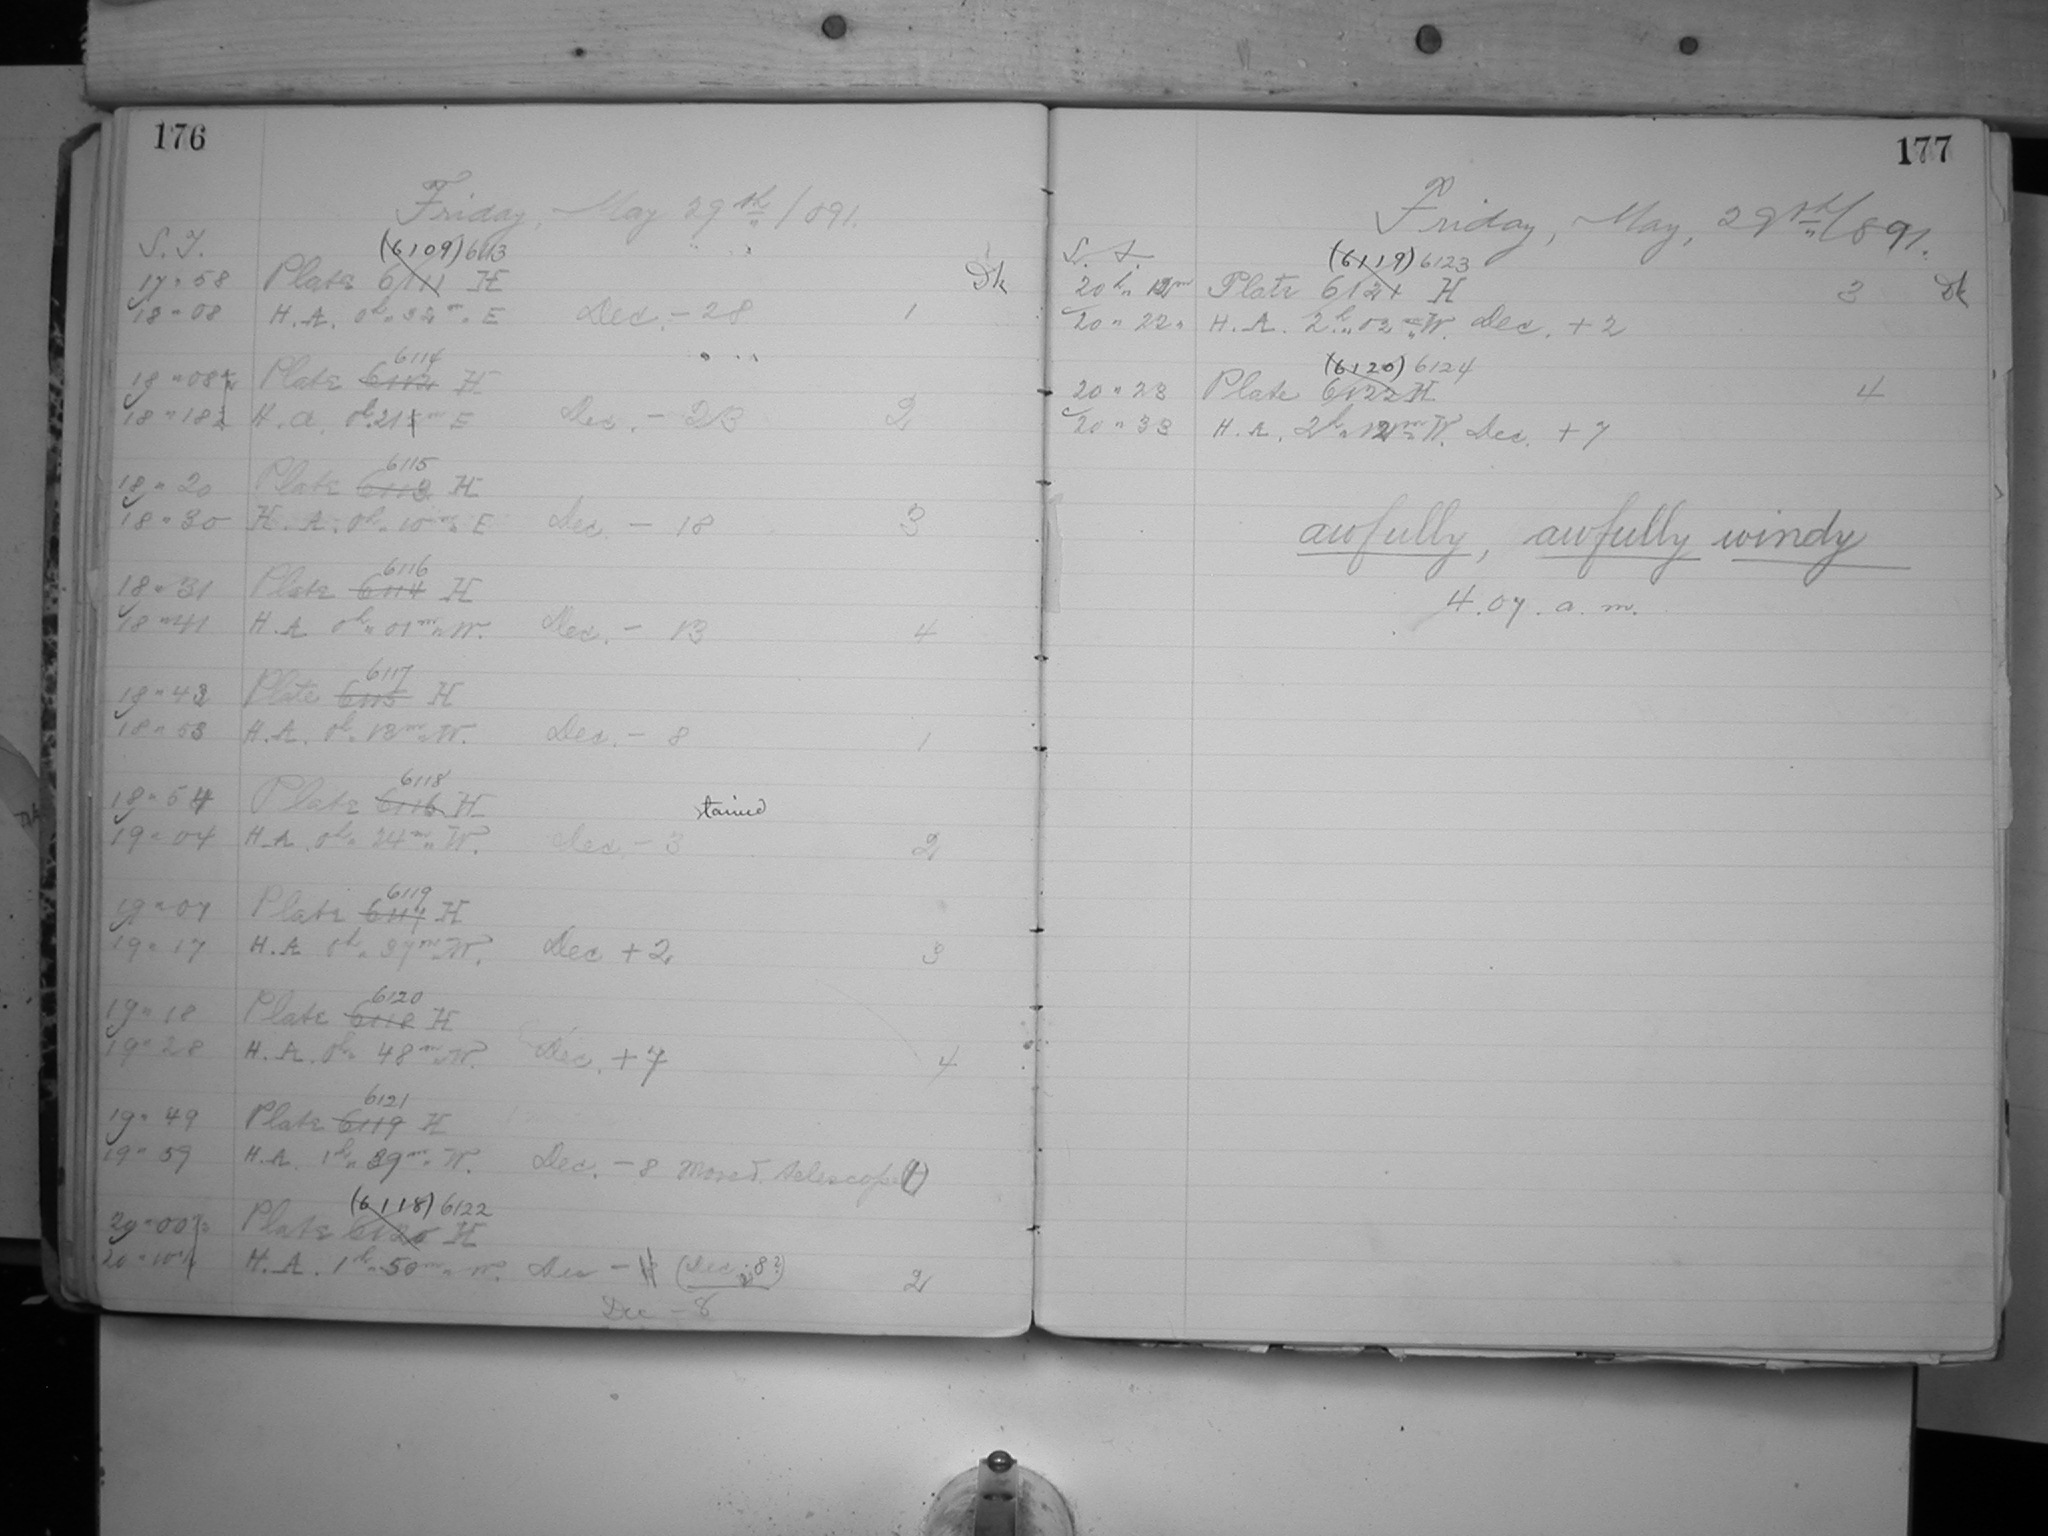 176
Friday, May 29th/1891.
S.T.
(6109) 6113
17 " 58 Plate 6111 H Dk
18 " 08 H.A. 0h " 32m " E Dec. - 28 1
6114
18 " 08½ Plate 6112 H
18 " 18½ H.A. 0h 21½m E Dec. - 23 2
6115
18 " 20 Plate 6113 H
18 " 30 H.A. 0h " 10m " E Dec. - 18 3
6116
18 " 31 Plate 6114 H
18 " 41 H.A. 0h " 01m " W. Dec. - 13 4
6117
18 " 43 Plate 6115 H
18 " 53 H.A. 0h " 13m " W. Dec. - 8 1
6118
18 " 54 Plate 6116 H stained
19 " 04 H.A. 0h " 24m " W. Dec. - 3 2
6119
19 " 07 Plate 6117 H
19 " 17 H.A. 0h " 37m " W. Dec + 2 3
6120
19 " 18 Plate 6118 H
19 " 28 H.A. 0h " 48m " W. Dec. + 7 4
6121
19 " 49 Plate 6119 H
19 " 59 H.A. 1h " 39m " W. Dec. - 8 Telescope (1)
(6118) 6122
20 " 00½ Plate 6120 H
20 " 10½ H.A. 1h " 50m " W. Dec - (Dec. 8?) 2
Dec - 8
177
Friday, May, 29th/1891.
S.T.
(6119) 6123
20h " 12m Plate 6121 H 3 Dk
20 " 22 " H.A. 2h " 02m " W. Dec. + 2
(6120) 6124
20 " 23 Plate 6122 H 4
20 " 33 H.A. 2h " 12m " W. Dec. + 7
awfully, awfully windy
4.07 a.m.